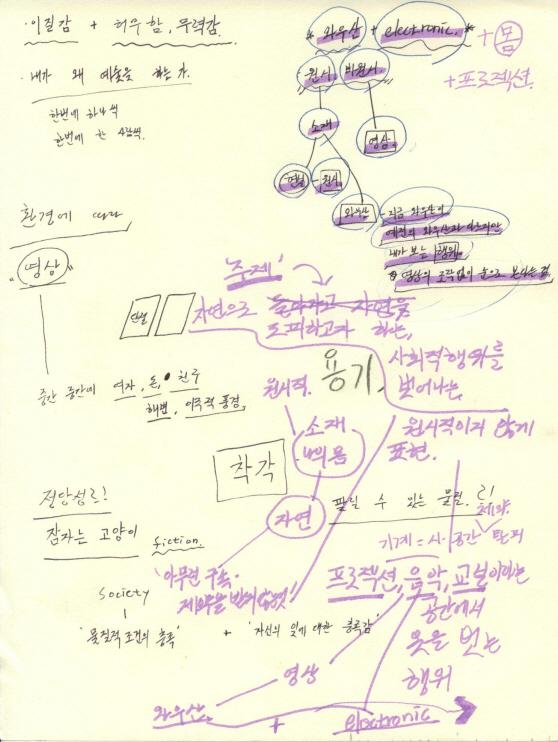 · 이질감 + 허무함, 무력감.
* 와우산 + electronic. *
+ 몸
+ 프로젝션.
· 내가 왜 예술을 하는가.
한번에 하나씩
한번에 한
원시 비원시.
소재
영상
연필 - 원시
와우산
- 지금 와우산이
예전의 와우산과 다르지만
내가 보는 행위.
영상의 조작없이 눈으로 보이는 것.
환경에 따라
"영상"
'주제'
연필
자연으로 돌아가고 자연을
도피하고자 하는,
용기,
사회적행위를
벗어나는,
원시적이지 않게
표현.
중간 중간에 여자, 돈, 친구
해변, 이국적 풍경,
원시적.
소재
나의 몸
자연
착각
정당성은!
잠자는 고양이
fiction.
팔릴 수 있는 물질.
제약.
기계 = 시·공간 탈피
'아무런 구속·
제약을 받지 않것'
프로젝션, 음악, 교실이라는
공간에서
옷을 벗는
행위
Society
'물질적 조건의 충족' + '자신의 일에 대한 만족감'
영상
와우산. + electronic